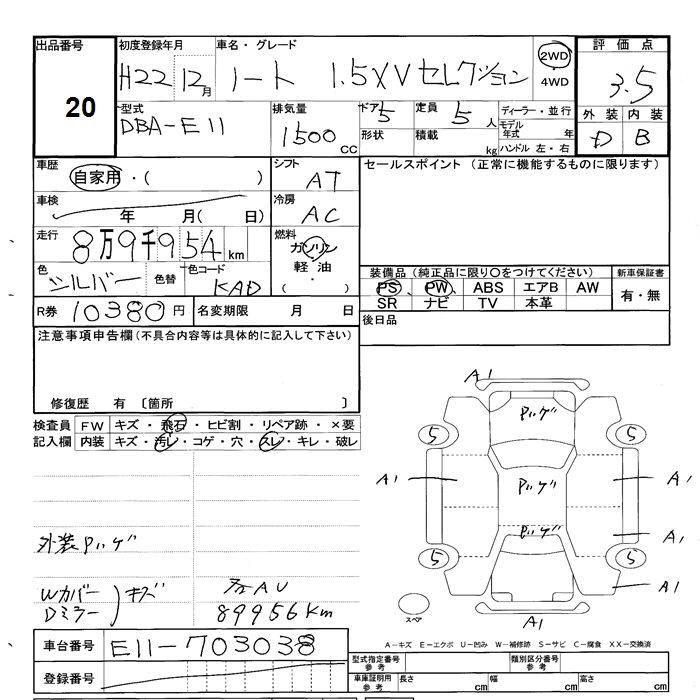 出品番号 初度登録年月 車名・グレード 評価点
20 H22 12月 ノート 1.5XVセレクション 2WD 4WD 3.5
外装 内装
D B
型式 排気量 ドア 定員 ディーラー・並行
DBA-E11 1500 CC 5 5人 モデル年式 年
形状 積載 kg ハンドル 左・右
車歴 シフト セールスポイント (正常に機能するものに限ります)
自家用・( ) AT
車検 冷房
年 月( 日) AC
走行 燃料
8万9千954km ガソリン
軽油
( ・ )
色 色替 色コード 装備品 (純正品に限り○をつけてください) 新車保証書
シルバー KAD PS PW ABS エアB AW 有・無
SR ナビ TV 本革
R券 10380円 名変期限 月 日 後日品
注意事項申告欄 (不具合内容等は具体的に記入して下さい)
修復歴 有 〔箇所 〕
検査員 FW キズ・飛石・ヒビ割・リペア跡・×要
記入欄 内装 キズ・汚レ・コゲ・穴・スレ・キレ・破レ
A1
Pッゲ
5 5
A1 Pッゲ A1
Pッゲ A1
外装Pッゲ
5 5
A1
Wカバー キズ
Dミラー
89956km
スペア
A1
車台番号 E11-703038
A-キズ E-エクボ U-凹み W-補修跡 S-サビ C-腐食 XX-交換済
登録番号
型式指定番号 参考 類別区分番号 参考
車庫証明用 参考 長さ cm 幅 cm 高さ cm